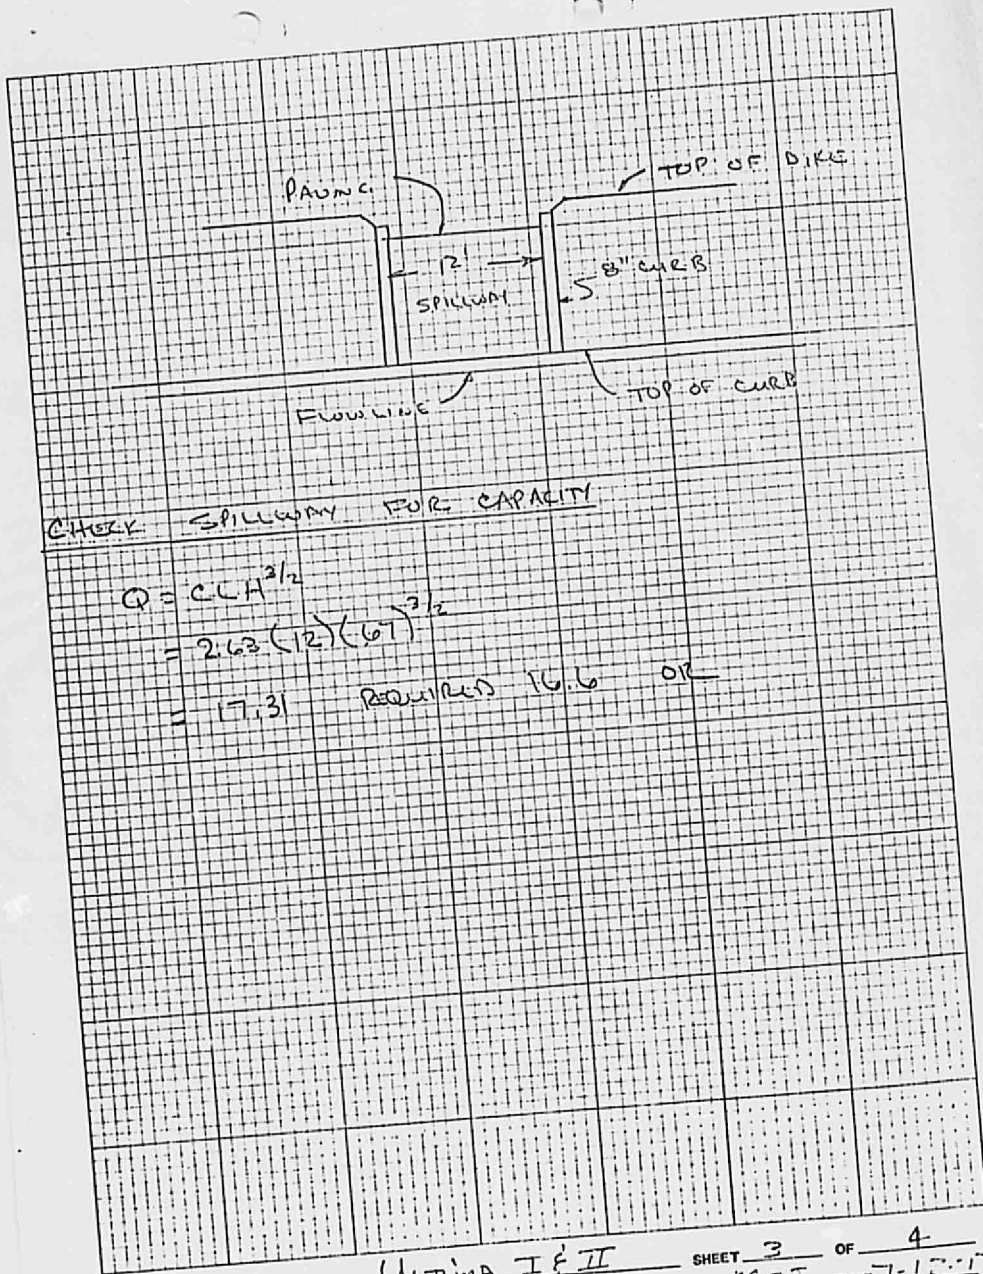 PAVING
TOP OF DIKE
12'
8" CURB
SPILLWAY
FLOWLINE
TOP OF CURB
CHECK SPILLWAY FOR CAPACITY
Q = CLH^3/2
= 2.63 (12) (.67)^3/2
= 17.31 REQUIRED 16.6 OK
ULTIMA I & II SHEET 3 OF 4